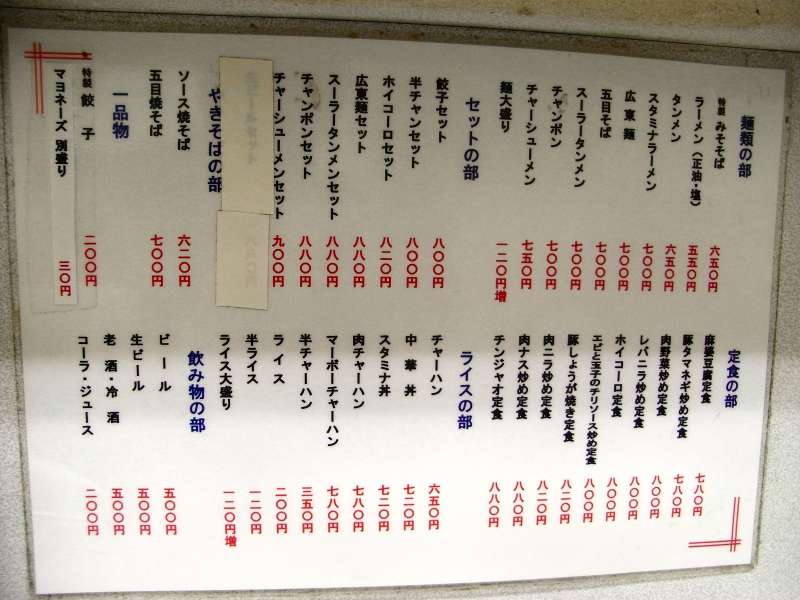 麺類の部
特製 みそそば 六五〇円
ラーメン(正油・塩) 五五〇円
タンメン 六五〇円
スタミナラーメン 七〇〇円
広東麺 七〇〇円
五目そば 七〇〇円
スーラータンメン 七〇〇円
チャンポン 七〇〇円
チャーシューメン 七五〇円
麺大盛り 一二〇円増
セットの部
餃子セット 八〇〇円
半チャンセット 八〇〇円
ホイコーロセット 八二〇円
広東麺セット 八八〇円
スーラータンメンセット 八八〇円
チャンポンセット 八八〇円
チャーシューメンセット 九〇〇円
やきそばの部
ソース焼そば 六二〇円
五目焼そば 七〇〇円
一品物
特製 餃子 二〇〇円
マヨネーズ 別盛り 三〇円
定食の部
麻婆豆腐定食 七八〇円
豚タマネギ炒め定食 七八〇円
肉野菜炒め定食 八〇〇円
レバニラ炒め定食 八〇〇円
ホイコーロ定食 八〇〇円
エビと玉子のチリソース炒め定食 八〇〇円
豚しょうが焼き定食 八二〇円
肉ニラ炒め定食 八二〇円
肉ナス炒め定食 八八〇円
チンジャオ定食 八八〇円
ライスの部
チャーハン 六五〇円
中華丼 七二〇円
スタミナ丼 七二〇円
肉チャーハン 七八〇円
マーボーチャーハン 七八〇円
半チャーハン 三五〇円
ライス 二〇〇円
半ライス 一二〇円
ライス大盛り 一二〇円増
飲み物の部
ビール 五〇〇円
生ビール 五〇〇円
老酒・冷酒 五〇〇円
コーラ・ジュース 二〇〇円